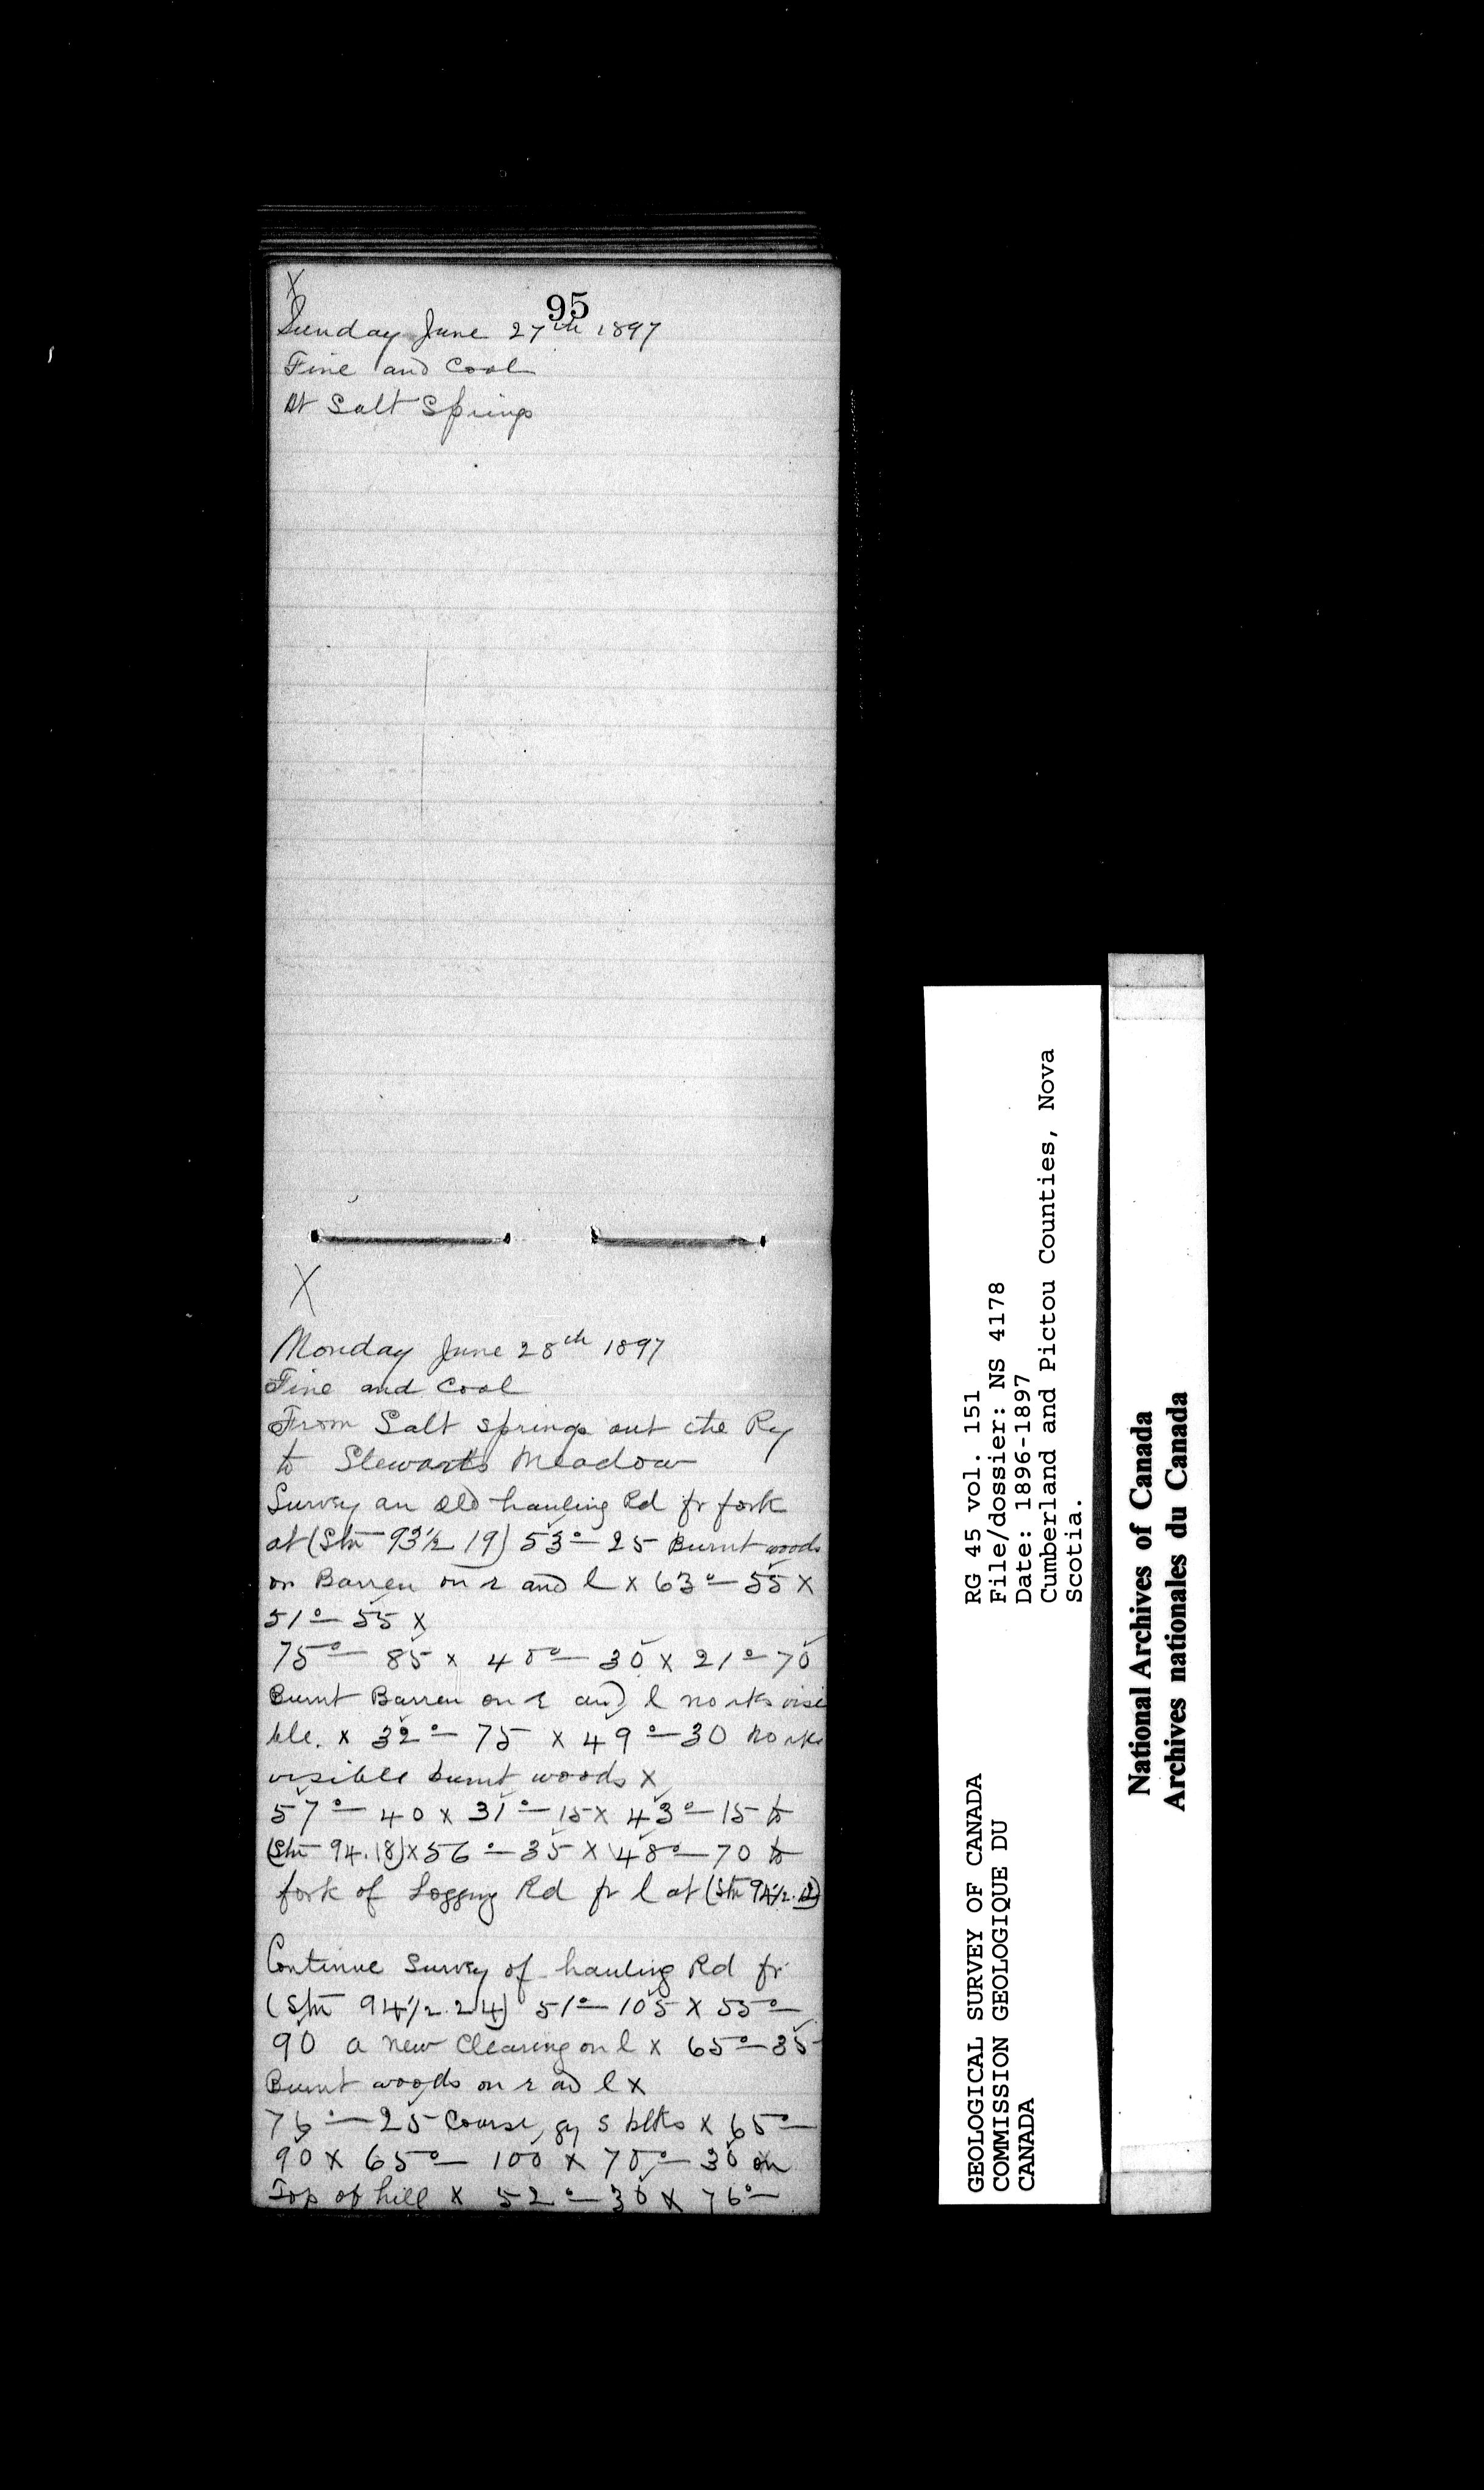 X
95
Sunday June 27th 1897
Fine and Cool
At Salt Springs
X
Monday June 28th 1897
Fine and Cool
From Salt springs out the Ry
to Stewarts Meadow
Survey an old hauling Rd fr fork
at (Stn 93½ 19) 53° — 25 Burnt woods
on Barren on r and l x 63° — 55 x
51° — 55 x
75° — 85 x 40° — 30 x 21° — 70
Burnt Barren on r and l no rks visi
ble. x 32° — 75 x 49° — 30 no rks
visible burnt woods x
57° — 40 x 31° — 15 x 43° — 15 to
(Stn 94.18) x 56° — 35 x 48° — 70 to
fork of Logging Rd fr l at (Stn 94½.)
Continue Survey of hauling Rd fr
(Stn 94½.24) 51° — 105 x 55° —
90 a new Clearing on l x 65° — 35
Burnt woods on r and l x
76° — 25 Coarse, gy s blks x 65° —
90 x 65° — 100 x 70° — 30 on
Top of hill x 52° — 30 x 76° —
GEOLOGICAL SURVEY OF CANADA
COMMISSION GEOLOGIQUE DU
CANADA
RG 45 vol. 151
File/dossier: NS 4178
Date: 1896-1897
Cumberland and Pictou Counties, Nova
Scotia.
National Archives of Canada
Archives nationales du Canada